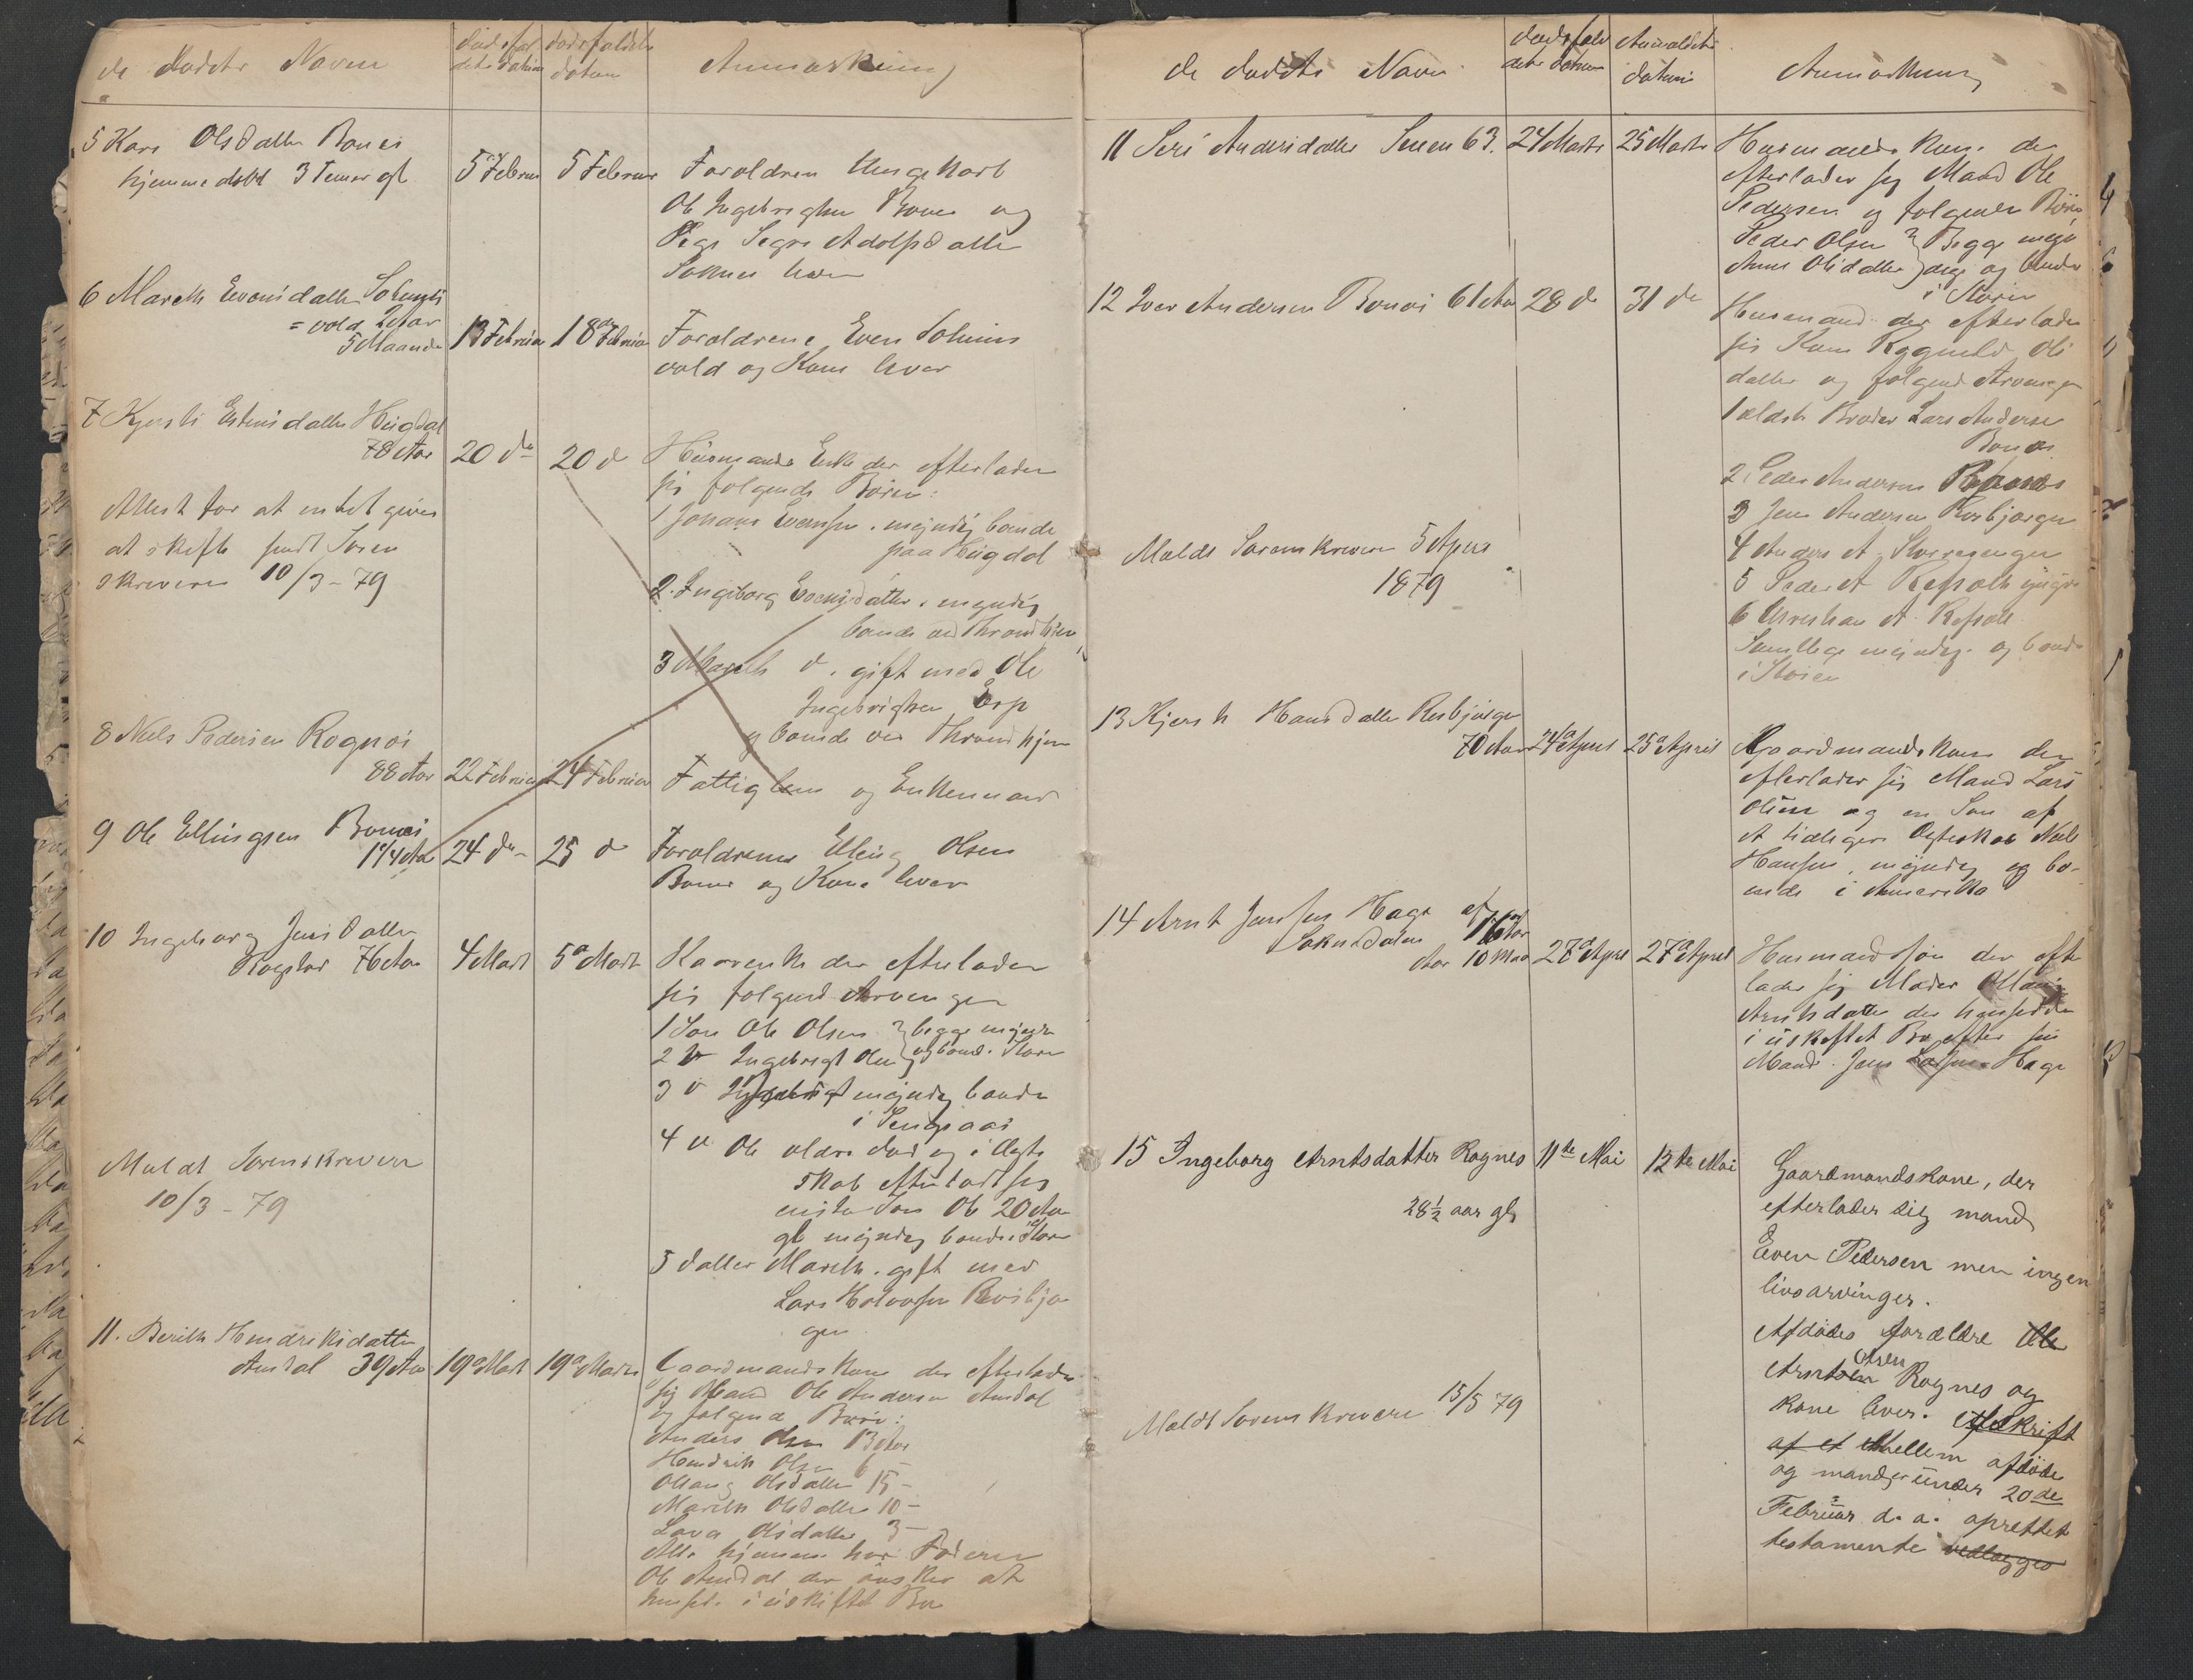 de dødets Navn
dødsfal
dets datum
dødsfaldets
datum
Anmærkning
5 Kari Olsdatter Bones
hjemmedøbt 3 Timer gl
5 Februar
5 Februar
Foroldren
Ole Ingebrigtsen Bones og
Pige Segri Adolfsdatter
Soknes
6 Marith Evensdatter Solems
=vold 2 Aar
5 Maaneder
13 Februar
18de Februar
Foroldrene Even Solems
vold og Kone lever
7 Kjersti Estensdatter Hugdal
78 Aar
20 do
20 do
Husmands Enke der efterlader
sig folgende Børen:
1 Johans Evensen. myndig boende
paa Hugdal
2. Ingeborg Evensdatter. myndig
boende ved Throndhjem
3 Marith do. gift med Ole
Ingebrigtsen Esp
og boende ved Throndhjem
Attest for at intet gives
at skifte sendt Soren
skriveren 10/3 - 79
8 Niels Pedersen Rognes
88 Aar
22 Februar
24 Februar
Fattiglem og Enkemand
9 Ole Ellingsen Bones
1 1/4 Aar
24 do
25 do
Foroldrene Elling Olsen
Bones og Kone lever
10 Ingeborg Jensdatter
76 Aar
4 Mart
5te Mart
Kaarenke der efterlader
sig folgend Arvenger
1 Søn Ole Olsen } begge myndi
2 do Ingebrigt Olsen } og boend. i Støren
3 do myndig boende
i Singsaas
4 do Ole oldre død og i Ægte
skab efterladt sig
eniste Søn Ole 20 Aar
gl myndig boende i Støren
5 datter Marith. gift med
Lars Halvorsen Rosbjø
gen
Meldt Sorenskriveren
10/3 - 79
11. Berith Hendriksdatter
Amdal 39 Aar
19de Mart
19de Marts
Gaardmandskone der efterlader
sig Mand Ole Andersen Amdal
og folgend Børn:
Anders Olsen 13 Aar
Hendrik Olsen 6 -
Olsdatter 15 -
Marith Olsdatter 10 -
Olsdatter 3 -
Alle hjemme hos Faderen
Ole Amdal der ønsker at
hensid. i uskiftet Bo
de dødets Navn
dødsfald
dets datum
Anmeldets
datum
Anmærkning
11 Seri Andersdatter Soknes 63.
24 Marts
25 Marts
Husmands kone der
efterlader sig Mand Ole
Pedersen og folgende Børn
Peder Olsen } Begge myn
Anne Olsdatter } dige og boende
i Støren
12 Iver Andersen Bones 61 Aar
28 do
31 do
Husmand der efterlader
sig Kone Ragnild Ols
datter og folgend Arvenger
1 aldste Broder Lars Andersen
Bones
2 Peder Andersen
3 Jens Andersen Rosbjørgen
4 Anders A.
5 Peder A.
6 Christian A.
Samtlige myndig. og boende
i Støren
Meldt Sorenskriveren 5 April
1879
13 Kjersti Hansdatter Rosbjørgen
70 Aar
24de April
25de April
Gaardmandskone der
efterlader sig Mand Lars
Olsen og en Søn af
et tidligere Ægteskab Niels
Hansen, myndig og bo-
ende i Amerika
14 Arnt Jensen Hage af
Soknedalen 16
Aar 10 Maa
27de April
27de April
Husmandssøn der efter
lader sig Moder
Arntsdatter der hensidder
i uskiftet Bo efter sin
Mand Jens Hage
15 Ingeborg Arntsdatter Rognes
28 1/2 aar gl
11te Mai
12te Mai
Gaardmandskone, der
efterlader sig mand
Even Pedersen men ingen
livsarvinger.
Afdødes forældre Ole
Olsen
Arntsen Rognes og
kone lever. Afskrift
af et mellem afdøde
og mand, under 20de
Februar d. a. oprettet
testamente vedlægges
Meldt Sorenskriveren 15/5 79